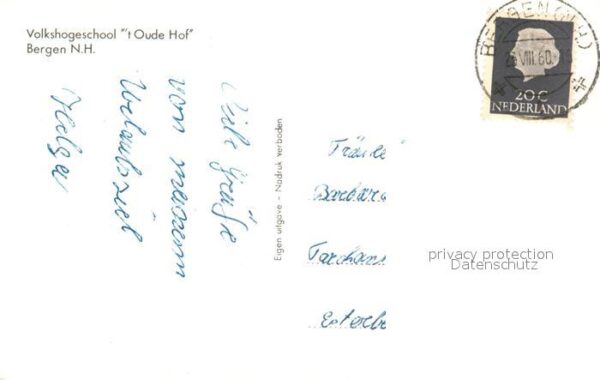 Volkshogeschool "'t Oude Hof"
Bergen N.H.
BERGEN (N.H.)
VIII.60
20 C
NEDERLAND
Viele Grüße
von meinem
Urlaubsziel
Helga
Eigen uitgave - Nadruk verboden
Barbara
privacy protection
Datenschutz